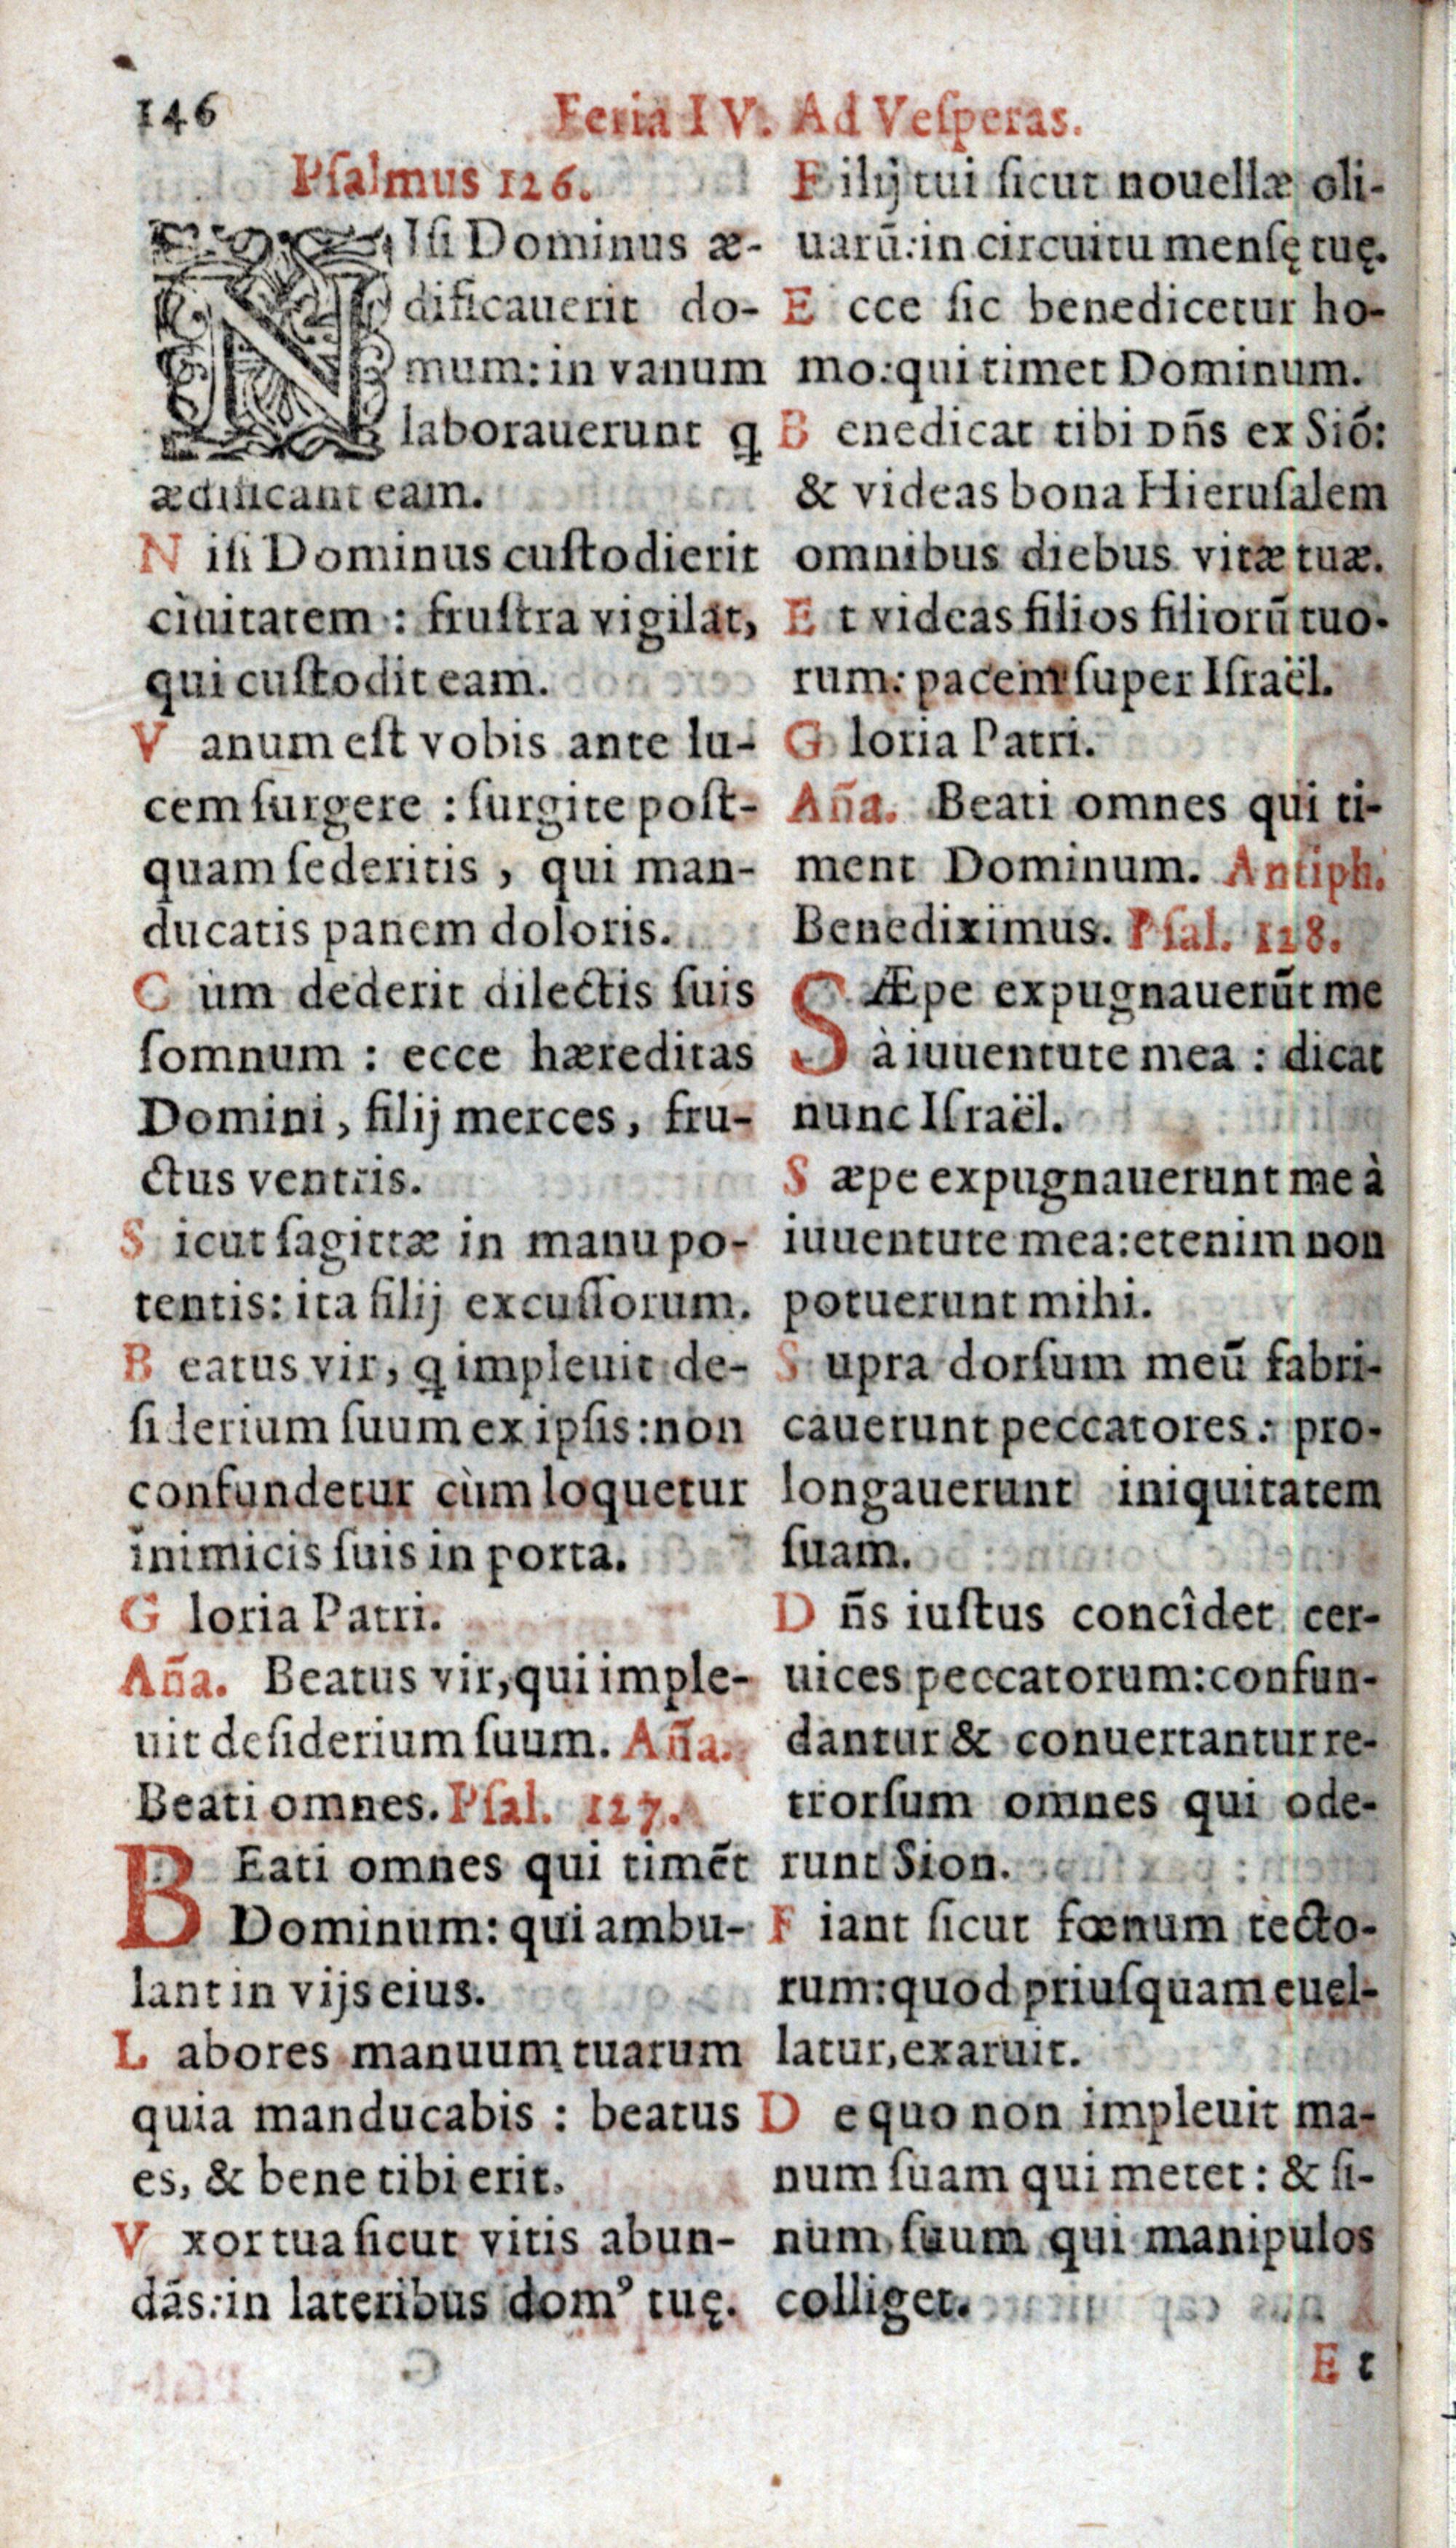 146
Feria IV. Ad Veſperas.
Pſalmus 126.
NIſi Dominus æ-
dificauerit do-
mum: in vanum
laborauerunt ꝗ
ædificant eam.
N iſi Dominus cuſtodierit
ciuitatem : fruſtra vigilat,
qui cuſtodit eam.
V anum eſt vobis ante lu-
cem ſurgere : ſurgite poſt-
quam ſederitis , qui man-
ducatis panem doloris.
C ùm dederit dilectis ſuis
ſomnum : ecce hæreditas
Domini , filij merces , fru-
ctus ventris.
S icut ſagittæ in manu po-
tentis: ita filij excuſſorum.
B eatus vir, ꝗ impleuit de-
ſiderium ſuum ex ipſis: non
confundetur cùm loquetur
inimicis ſuis in porta.
G loria Patri.
Añа. Beatus vir, qui imple-
uit deſiderium ſuum. Aña.
Beati omnes. Pſal. 127.
BEati omnes qui timēt
Dominum: qui ambu-
lant in vijs eius.
L abores manuum tuarum
quia manducabis : beatus
es, & bene tibi erit.
V xor tua ſicut vitis abun-
dās: in lateribus domꝰ tuę.
F ilij tui ſicut nouellæ oli-
uarū: in circuitu menſę tuę.
E cce ſic benedicetur ho-
mo: qui timet Dominum.
B enedicat tibi Dñs ex Siō:
& videas bona Hieruſalem
omnibus diebus vitæ tuæ.
E t videas filios filiorū tuo-
rum: pacem ſuper Iſraël.
G loria Patri.
Aña. Beati omnes qui ti-
ment Dominum. Antiph.
Benediximus. Pſal. 128.
SÆpe expugnauerūt me
à iuuentute mea : dicat
nunc Iſraël.
S æpe expugnauerunt me à
iuuentute mea: etenim non
potuerunt mihi.
S upra dorſum meū fabri-
cauerunt peccatores : pro-
longauerunt iniquitatem
ſuam.
D ñs iuſtus concîdet cer-
uices peccatorum: confun-
dantur & conuertantur re-
trorſum omnes qui ode-
runt Sion.
F iant ſicut fœnum tecto-
rum: quod priuſquam euel-
latur, exaruit.
D e quo non impleuit ma-
num ſuam qui metet : & ſi-
num ſuum qui manipulos
colliget.
E t